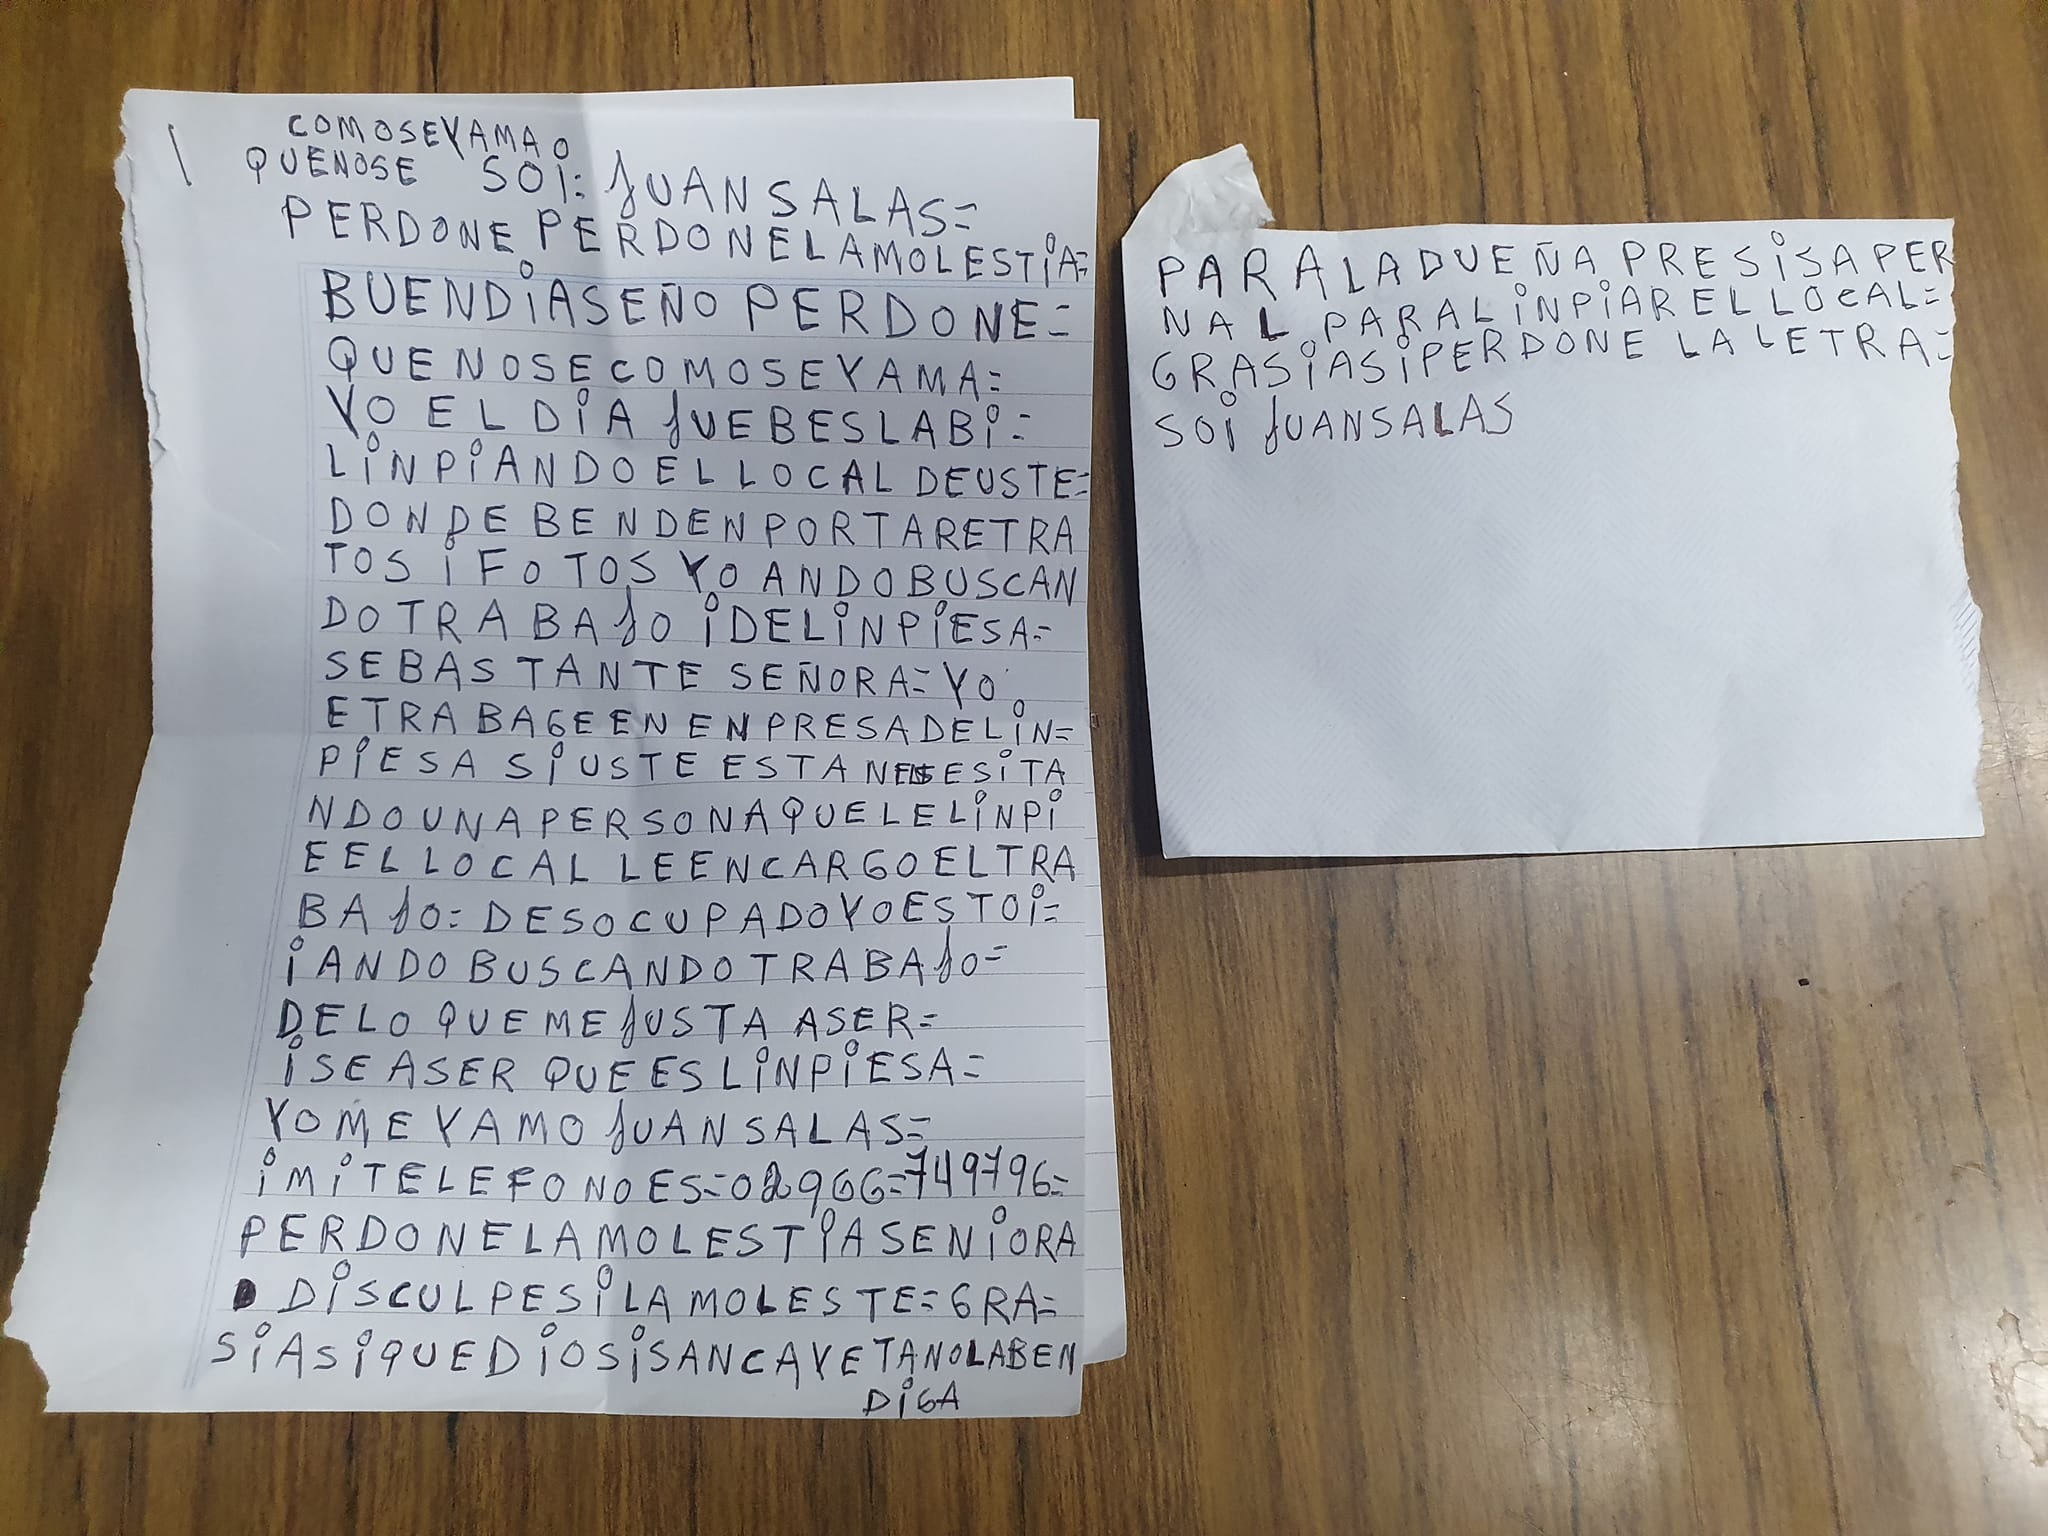 COMOSEYAMAO
QUENOSE SOI: JUANSALAS=
PERDONE PERDONELAMOLESTIA=
BUENDIASEÑO PERDONE=
QUENOSECOMOSEYAMA=
YO EL DIA JUEBESLABI=
LINPIANDOELLOCALDEUSTE=
DONDEBENDENPORTARETRA
TOS I FOTOS YO ANDOBUSCAN
DOTRABAJO IDELINPIESA=
SEBASTANTE SEÑORA=YO
ETRABAGEENENPRESADELIN=
PIESA SIUSTE ESTA NESESITA
NDOUNAPERSONAQUELELINPI
EELLOCAL LEENCARGOELTRA
BAJO=DESOCUPADOYOESTOI=
IANDOBUSCANDOTRABAJO=
DELO QUEMEJUSTA ASER=
ISEASER QUEESLINPIESA=
YOMEYAMO JUANSALAS=
IMITELEFONOES=02966=749796=
PERDONELAMOLESTIASENIORA
DISCULPESILAMOLESTE=GRA=
SIASIQUEDIOSISANCAYETANOLABEN
DIGA
PARALADUEÑA PRESISAPER
NAL PARALINPIARELLOCAL=
GRASIASIPERDONE LALETRA=
SOI JUANSALAS